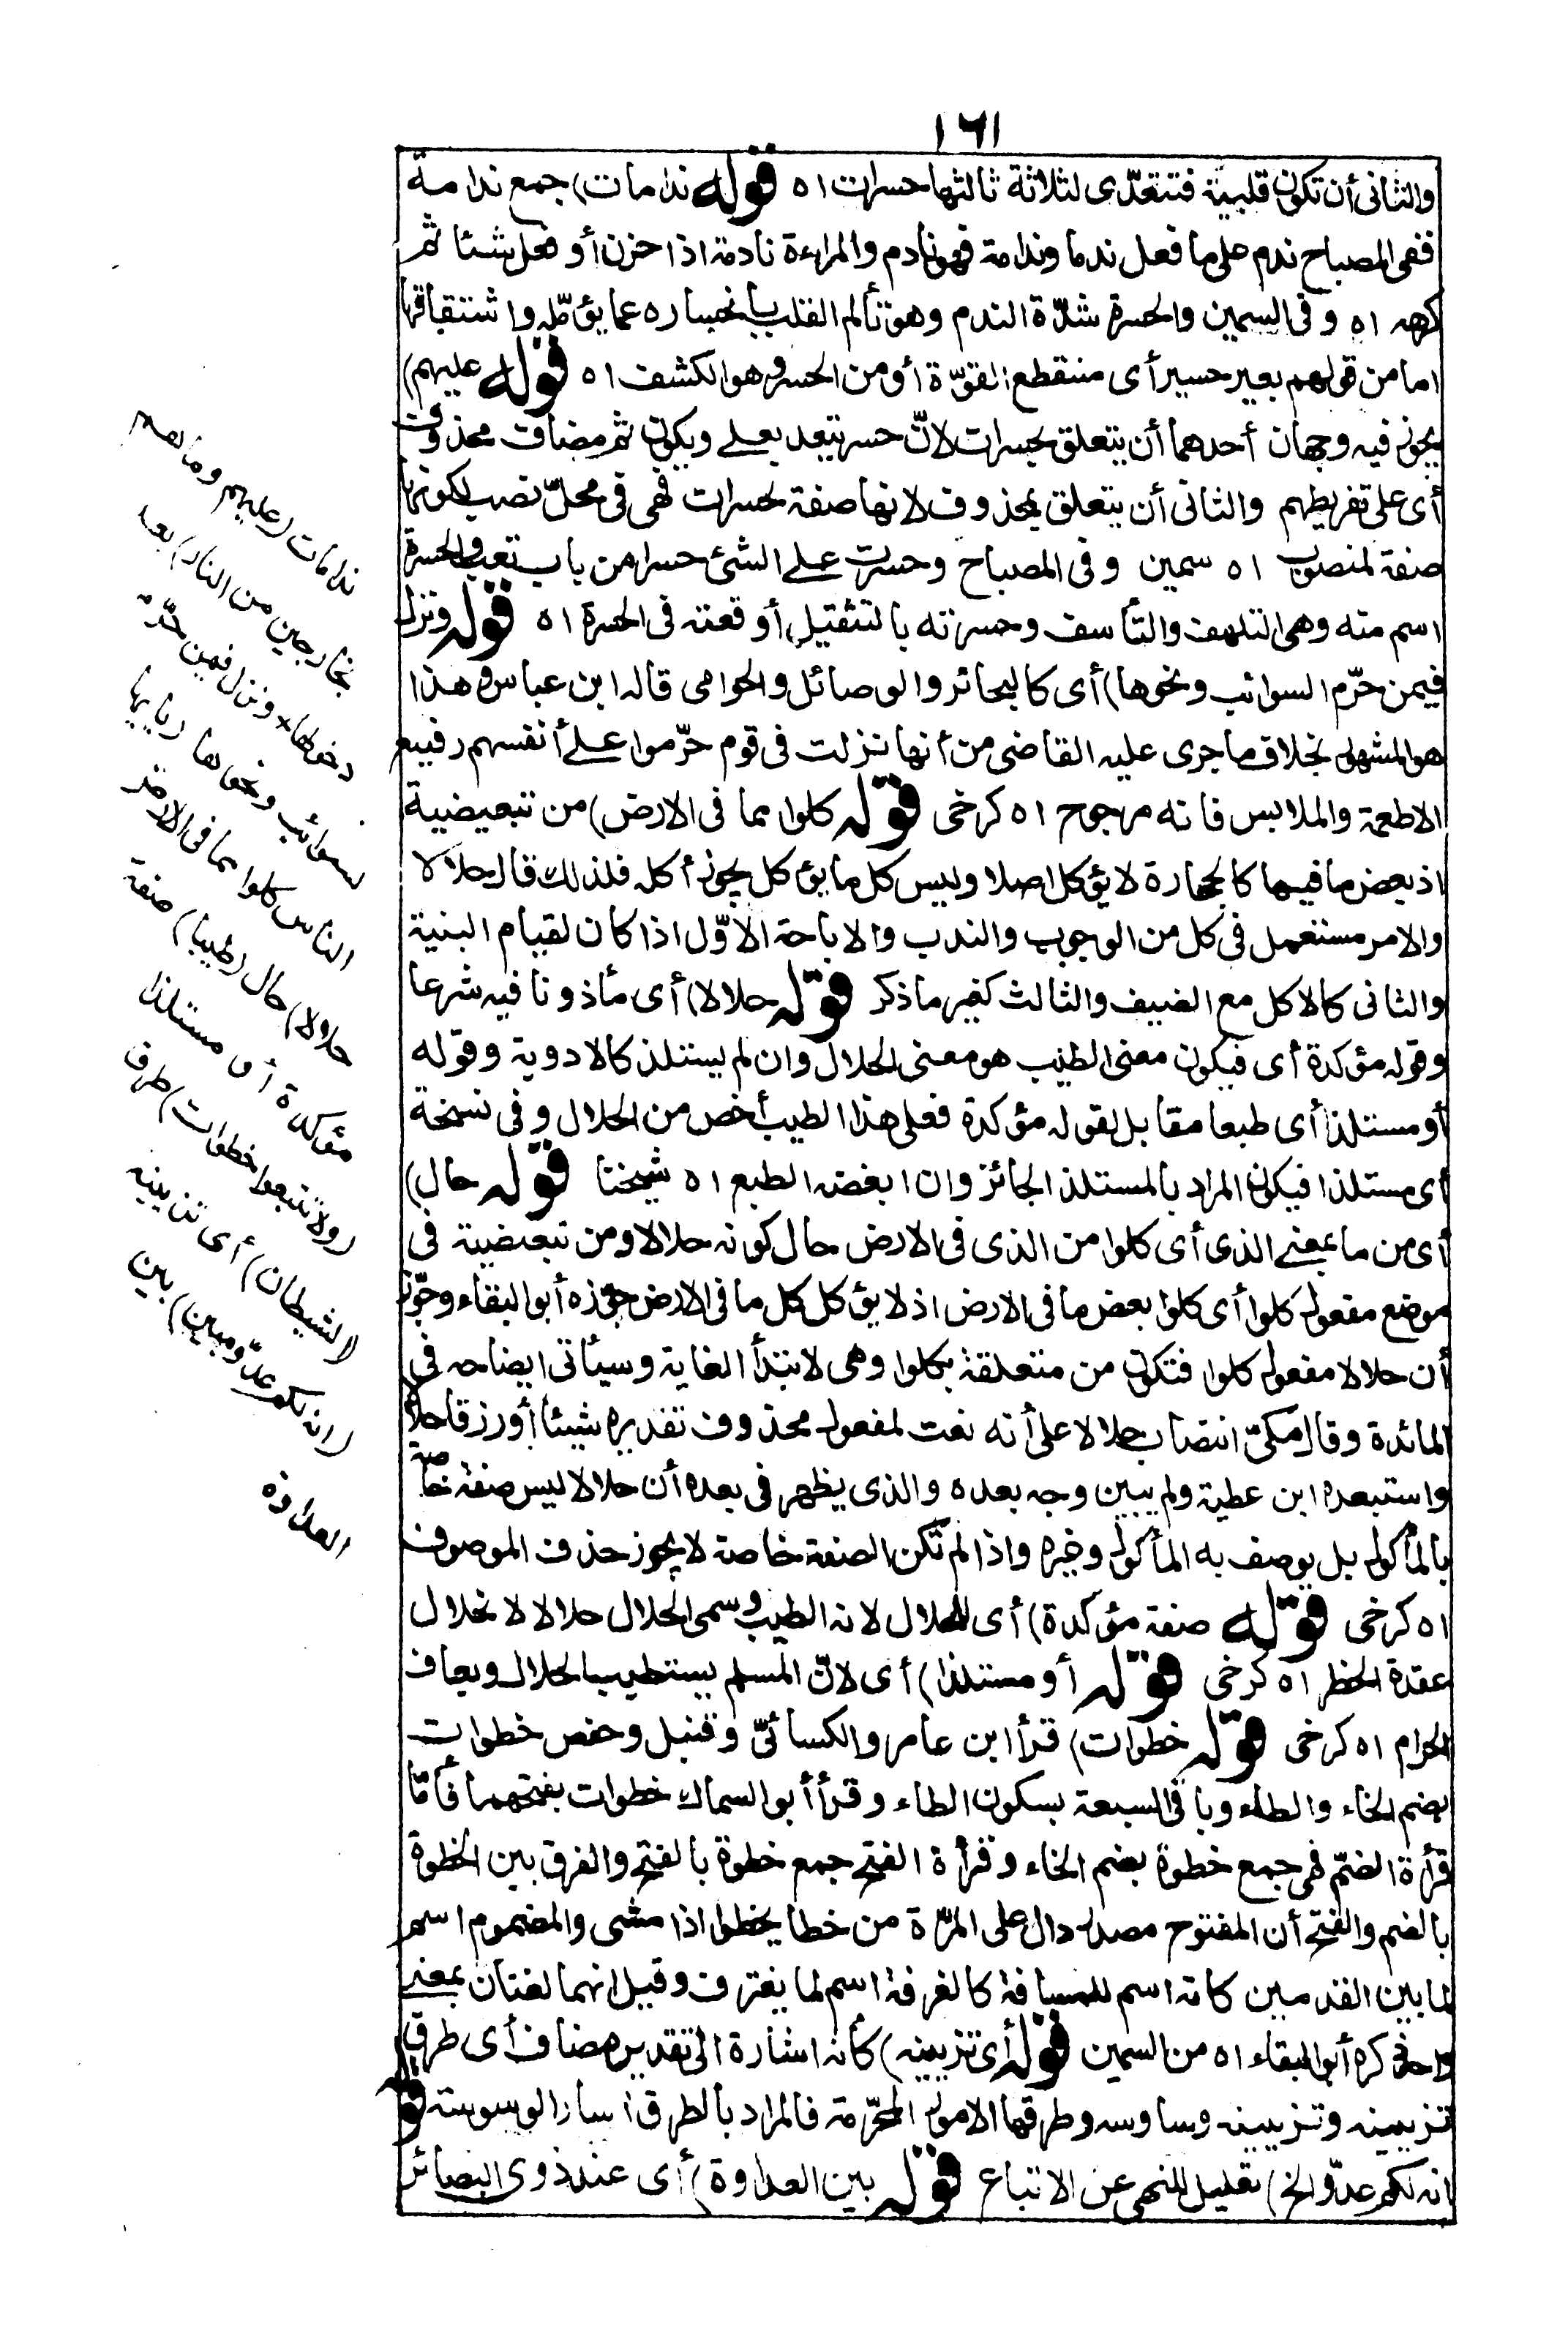 ١٦١
والثانى أن تكون قلبية فتتعدّى لثلاثة ثالثها حسرات اه قوله ندامات) جمع ندامة
ففى المصباح ندم على ما فعل ندما وندامة فهو نادم والمراءة نادمة اذا حزن أو فعل شئا ثم
كرهه اه وفى السمين والحسرة شدّة الندم وهو تألم القلب بانحساره عما يؤمّله واشتقاقها
اما من قولهم بعير حسير أى منقطع القوّة أو من الحسر وهو الكشف اه قوله عليهم)
يجوز فيه وجهان أحدهما أن يتعلق بحسرات لانّ حسر يتعد بعلے ويكون ثم مضاف محذوف
أى على تفريطهم والثانى أن يتعلق بمحذوف لانها صفة لحسرات فهى فى محلّ نصب لكونها
صفة لمنصوب اه سمين وفى المصباح وحسرت علے الشئ حسرا من باب تعب والحسرة
اسم منه وهى التلهف والتأسف وحسرته بالتثقيل أوقعته فى الحسرة اه قوله ونزل
فيمن حرّم السوائب ونحوها) أى كالبحائر والوصائل والحوامى قاله ابن عباس وهذا
هو المشهور بخلاف ما جرى عليه القاضى من أنها نزلت فى قوم حرّموا علے أنفسهم رفيع
الاطعمة والملابس فانه مرجوح اه كرخى قوله كلوا مما فى الارض) من تبعيضية
اذ بعض ما فيها كالحجارة لا يؤكل اصلا وليس كل ما يؤكل يجوز أكله فلذلك قال حلالا
والامر مستعمل فى كل من الوجوب والندب والاباحة الاوّل اذا كان لقيام البنية
والثانى كالاكل مع الضيف والثالث كغير ما ذكر قوله حلالا) أى مأذونا فيه شرعا
وقوله مؤكدة أى فيكون معنى الطيب هو معنى الحلال وان لم يستلذ كالادوية وقوله
أو مستلذا أى طبعا مقابل لقوله مؤكدة فعلى هذا الطيب أخص من الحلال وفى نسخة
أى مستلذا فيكون المراد بالمستلذ الجائز وان ابغضه الطبع اه شيخنا قوله حال)
أى من ما بمعنے الذى أى كلوا من الذى فى الارض حال كونه حلالا ومن تبعيضية فى
موضع مفعول كلوا أى كلوا بعض ما فى الارض اذ لا يؤكل كل ما فى الارض جوّزه أبو البقاء وجوّز
أن حلالا مفعول كلوا فتكون من متعلقة بكلوا وهى لابتدأ الغاية وسيأتى ايضاحه فى
المائدة وقال مكىّ انتصاب حلالا على أنه نعت لمفعول محذوف تقديره شيئا أو رزقا حلالا
واستبعده ابن عطية ولم يبين وجه بعده والذى يظهر فى بعده أن حلالا ليس صفة خاصة
بالمأكول بل يوصف به المأكول وغيره واذا لم تكن الصفة خاصة لا يجوز حذف الموصوف
اه كرخى قوله صفة مؤكدة) أى للحلال لانه الطيب وسمى الحلال حلالا لانحلال
عقدة الحظر اه كرخى قوله أو مستلذا) أى لانّ المسلم يستطيب الحلال ويعاف
الحرام اه كرخى قوله خطوات) قرأ ابن عامر والكسائىّ وقنبل وحفص خطوات
بضم الخاء والطاء وباقى السبعة بسكون الطاء وقرأ أبو السماك خطوات بفتحهما فأمّا
قرأة الضمّ فهى جمع خطوة بضم الخاء وقرأة الفتح جمع خطوة بالفتح والفرق بين الخطوة
بالضم والفتح أن المفتوح مصدر دال على المرّة من خطا يخطو اذا مشى والمضموم اسم
لما بين القدمين كانه اسم للمسافة كالغرفة اسم لما يغترف وقيل انهما لغتان بمعنے
واحد ذكره أبو البقاء اه من السمين قوله أى تزيينه) كأنه اشارة الى تقدير مضاف أى طرق
تزيينه وتزيينه وساوسه وطرقها الامور المحرّمة فالمراد بالطرق اسار الوسوسة قوله
انه لكم عدوّ الخ) تعليل للنهى عن الاتباع قوله بين العداوة) أى عند ذوى البصائر
ندامات (عليهم وما هم
بخارجين من النار) بعد
دخولها ونزل فيمن حرّم
السوائب ونحوها (يا أيها
الناس كلوا مما فى الارض
حلالا) حال (طيبا) صفة
مؤكدة أو مستلذا
(ولا تتبعوا خطوات) طرق
(الشيطان) أى تزيينه
(انه لكم عدوّ مبين) بين
العداوة